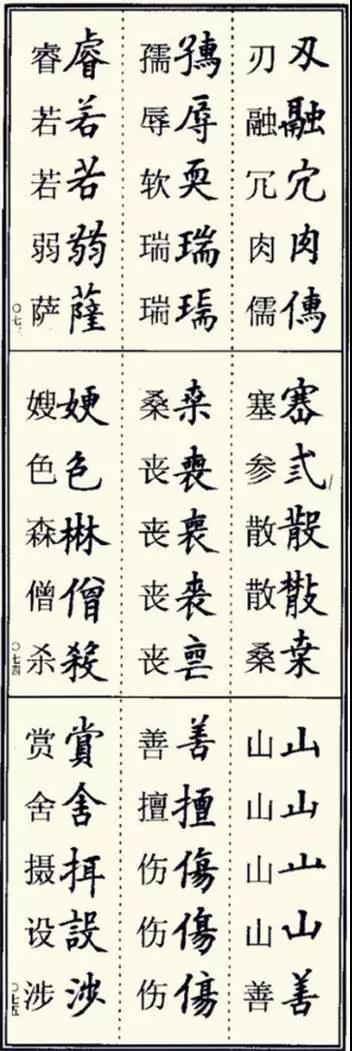 刄融宂肉
刃融冗肉儒
辱耎瑞
孺辱软瑞瑞
睿若若弱薩
睿若若弱萨
〇七
塞弎散㪚桒
塞参散散桑
桒喪
桑丧丧丧丧
色僧殺
嫂色森僧杀
〇七四
山山山山善
山山山山善
善擅傷傷傷
善擅伤伤伤
賞舍設涉
赏舍摄设涉
〇七五